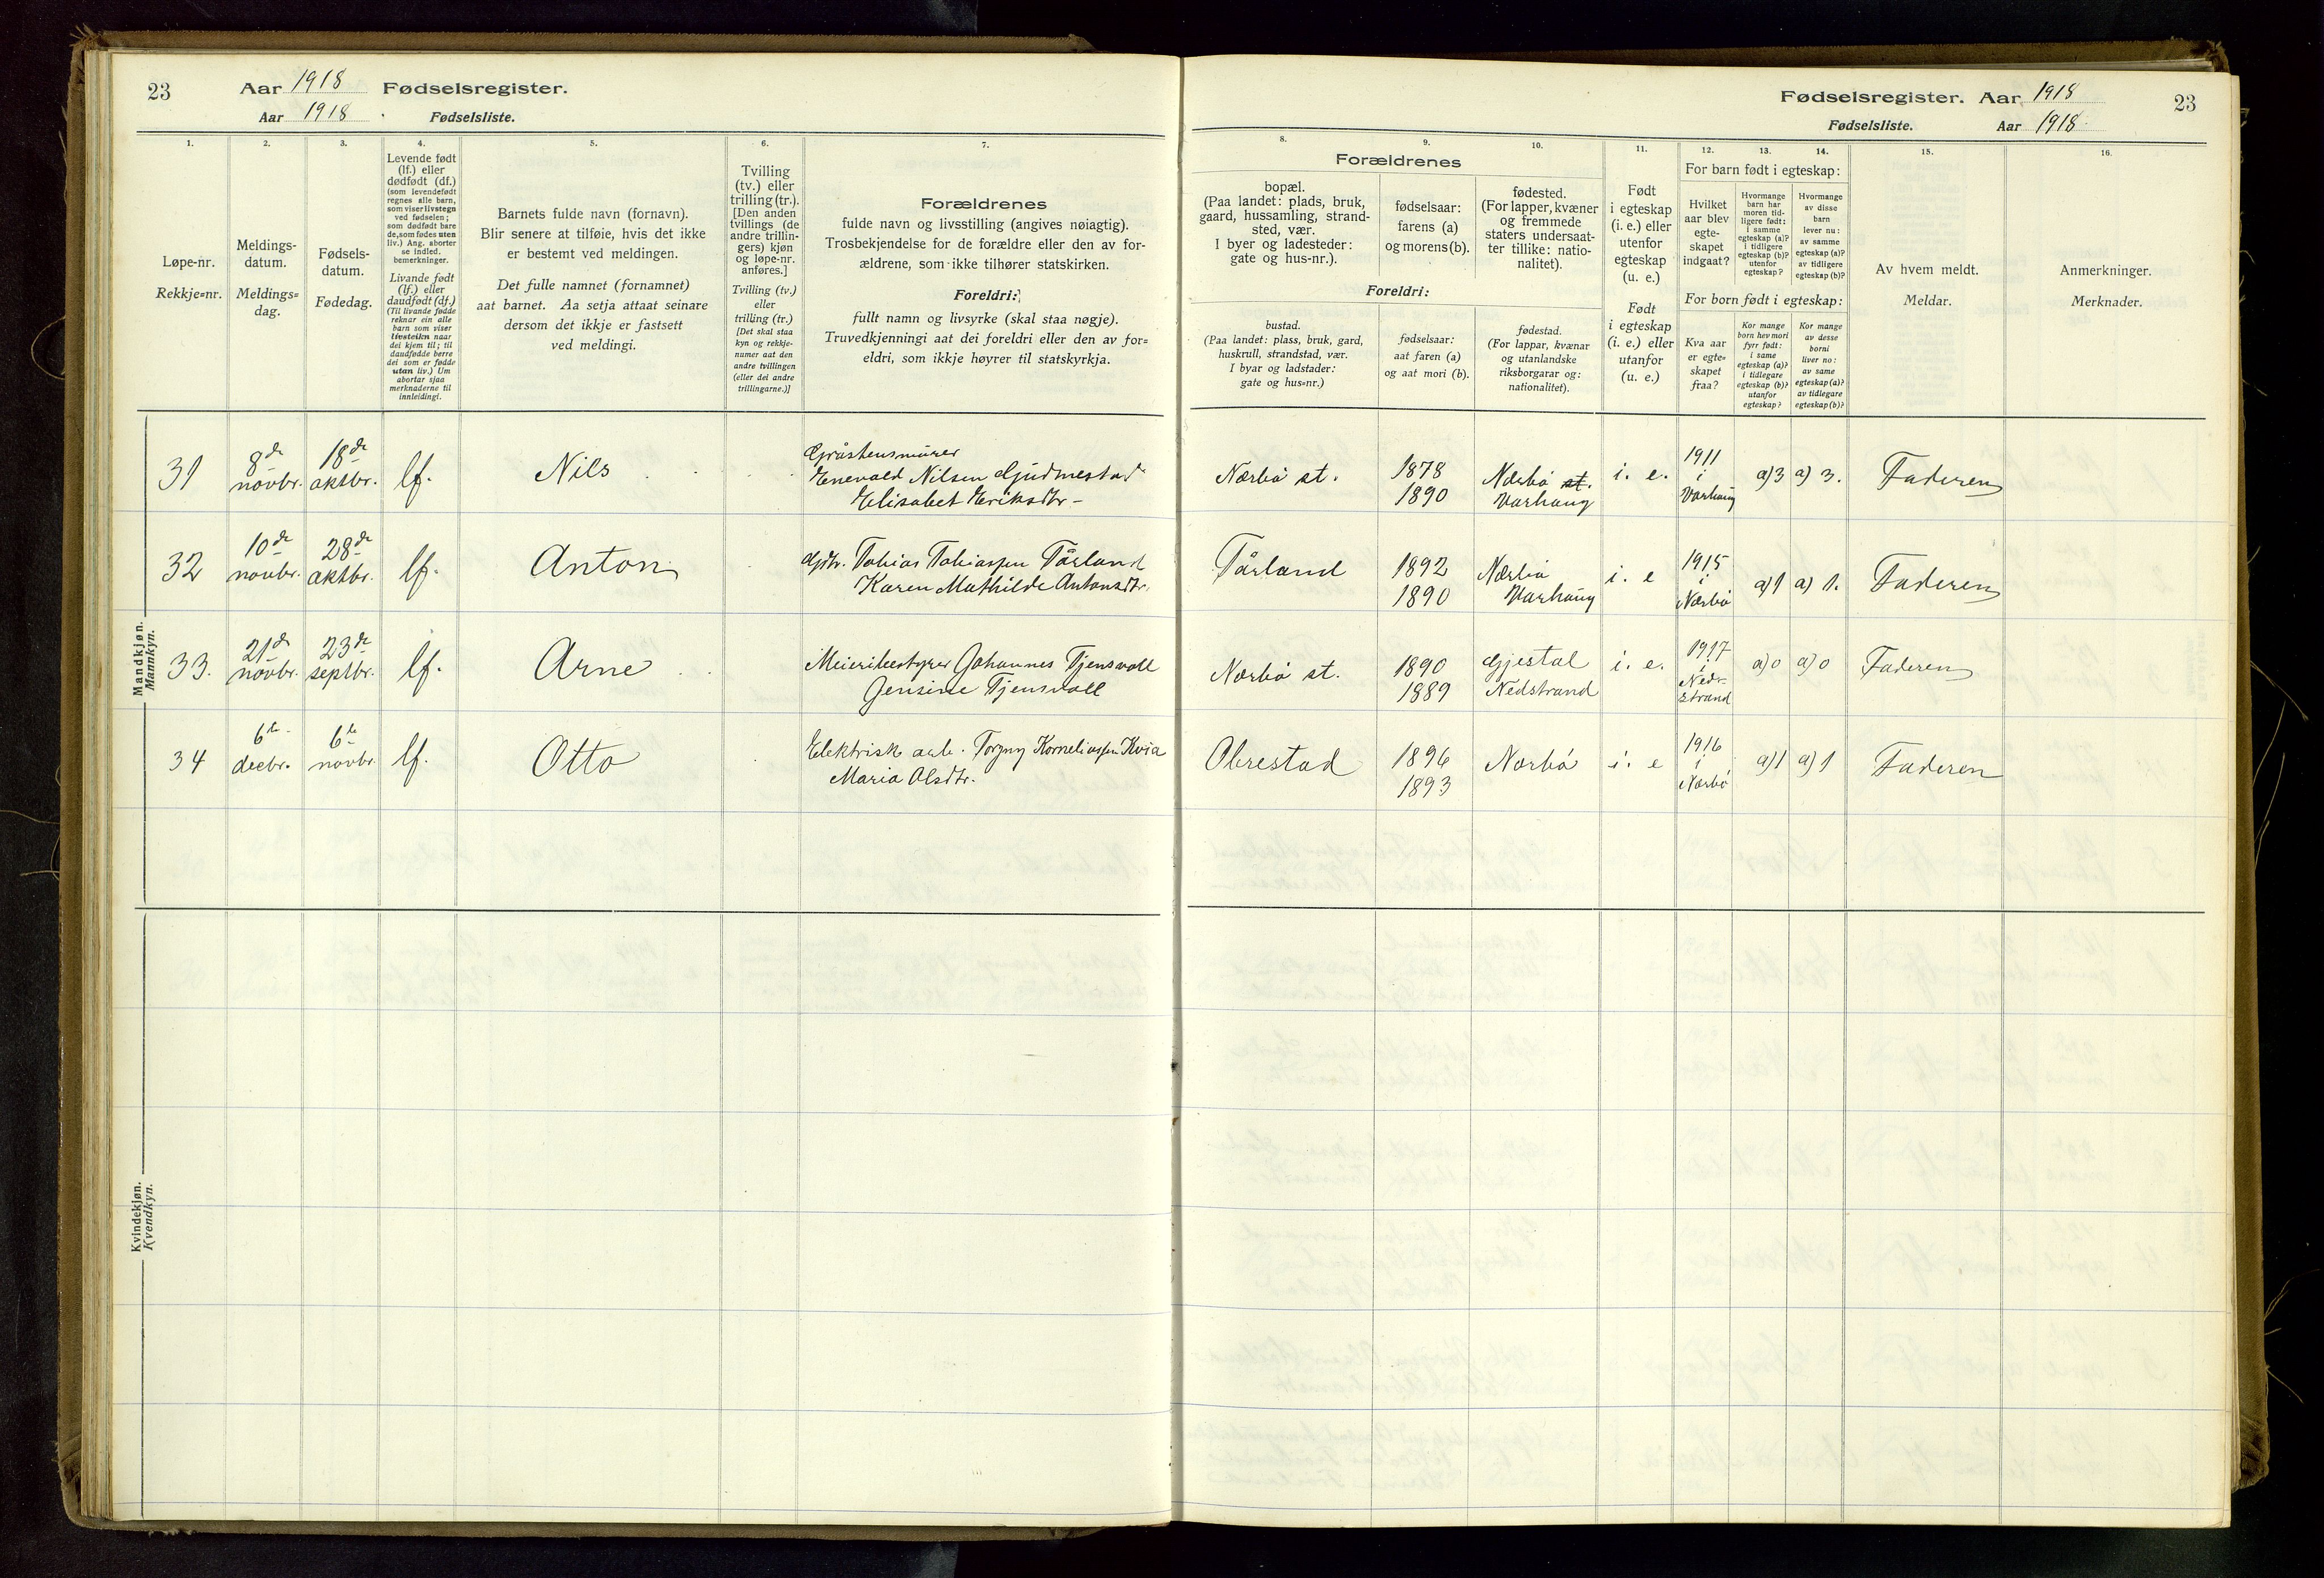 23
Aar 1918 Fødselsregister.
Aar 1918. Fødselsliste.
1. 2. 3. 4. 5. 6. 7.
Løpe-nr.
Rekkje=nr.
Meldings-
datum.
Meldings=
dag.
Fødsels-
datum.
Fødedag.
Levende født
(lf.) eller
dødfødt (df.)
(som levendefødt
regnes alle barn,
som viser livstegn
ved fødselen;
som dødfødt bare
de, som fødes uten
liv.) Ang. aborter
se indled.
bemerkninger.
Livande født
(lf.) eller
daudfødt (df.)
(Til livande fødde
reknar ein alle
barn som viser
livsteikn naar
dei kjem til; til
daudfødde berre
dei som er fødde
utan liv.) Um
abortar sjaa
merknaderne til
innleidingi.
Barnets fulde navn (fornavn).
Blir senere at tilføie, hvis det ikke
er bestemt ved meldingen.
Det fulle namnet (fornamnet)
aat barnet. Aa setja attaat seinare
dersom det ikkje er fastsett
ved meldingi.
Tvilling
(tv.) eller
trilling (tr.).
[Den anden
tvillings (de
andre trillin-
gers) kjøn
og løpe-nr.
anføres.]
Tvilling (tv.)
eller
trilling (tr.)
[Det skal staa
kyn og rekkje-
numer aat den
andre tvillingen
(eller dei andre
trillingarne.)]
Forældrenes
fulde navn og livsstilling (angives nøiagtig).
Trosbekjendelse for de forældre eller den av for-
ældrene, som ikke tilhører statskirken.
Foreldri:
fullt namn og livsyrke (skal staa nøgje).
Truvedkjenningi aat dei foreldri eller den av for=
eldri, som ikkje høyrer til statskyrkja.
Mandkjøn.
Mannkyn.
31 8de novbr. 18de oktbr. lf. Nils
Gråstensmurer
Enevald Nilsen Gudmestad
Elisabet Eriksdtr -
32 10de novbr. 28de oktbr. lf. Anton
Gdbr. Tobias Tobiassen Tårland
Karen Mathilde Antonsdtr.
33. 21de novbr. 23de septbr. lf. Arne
Meieribestyrer Johannes Tjensvoll
Jensine Tjensvoll
34 6te decbr. 6te novbr. lf. Otto
Elektrisk arb. Torger Korneliussen Kvia
Maria Olsdtr.
Kvindekjøn.
Kvendkyn.
Fødselsregister. Aar 1918 23
Fødselsliste. Aar 1918
8. 9. 10. 11. 12. 13. 14. 15. 16.
Forældrenes
bopæl.
(Paa landet: plads, bruk,
gaard, hussamling, strand-
sted, vær.
I byer og ladesteder:
gate og hus-nr.).
fødselsaar:
farens (a)
og morens (b).
fødested.
(For lapper, kvæner
og fremmede
staters undersaat-
ter tillike: natio-
nalitet).
Foreldri:
bustad.
(Paa landet: plass, bruk, gard,
huskrull, strandstad, vær.
I byar og ladstader:
gate og hus=nr.)
fødselsaar:
aat faren (a)
og aat mori (b).
fødestad.
(For lappar, kvænar
og utanlandske
riksborgarar og:
nationalitet).
Født
i egteskap
(i. e.) eller
utenfor
egteskap
(u. e.)
Født
i egteskap
(i. e.) eller
utanfor
(u. e.)
For barn født i egteskap:
Hvilket
aar blev
egte-
skapet
indgaat?
Hvormange
barn har
moren tid-
ligere født:
i samme
egteskap (a)?
i tidligere
egteskap (b)?
utenfor
egteskap?
Hvormange
av disse
barn
lever nu:
av samme
egteskap (a)?
av tidligere
egteskap (b)?
For born født i egteskap:
Kva aar
er egte=
skapet
fraa?
Kor mange
born hev mori
fyrr født:
i same
egteskap (a)?
i tidlegare
egteskap (b)?
utanfor
egteskap?
Kor mange
av desse
borni
liver no:
av same
egteskap (a)?
av tidlegare
egteskap (b)?
Av hvem meldt.
Meldar.
Anmerkninger.
Merknader.
Nærbø st. 1878 Nærbø st. i. e. 1911 i Varhaug a) 3 a) 3. Faderen
1890 Varhaug
Tårland 1892 Nærbø i. e 1915 i Nærbø a) 1 a) 1. Faderen
1890 Varhaug
Nærbø st. 1890 Gjestal i. e. 1917 i Nedstrand a) 0 a) 0 Faderen
1889 Nedstrand
Obrestad 1896 Nærbø i. e 1916 i Nærbø a) 1 a) 1 Faderen
1893